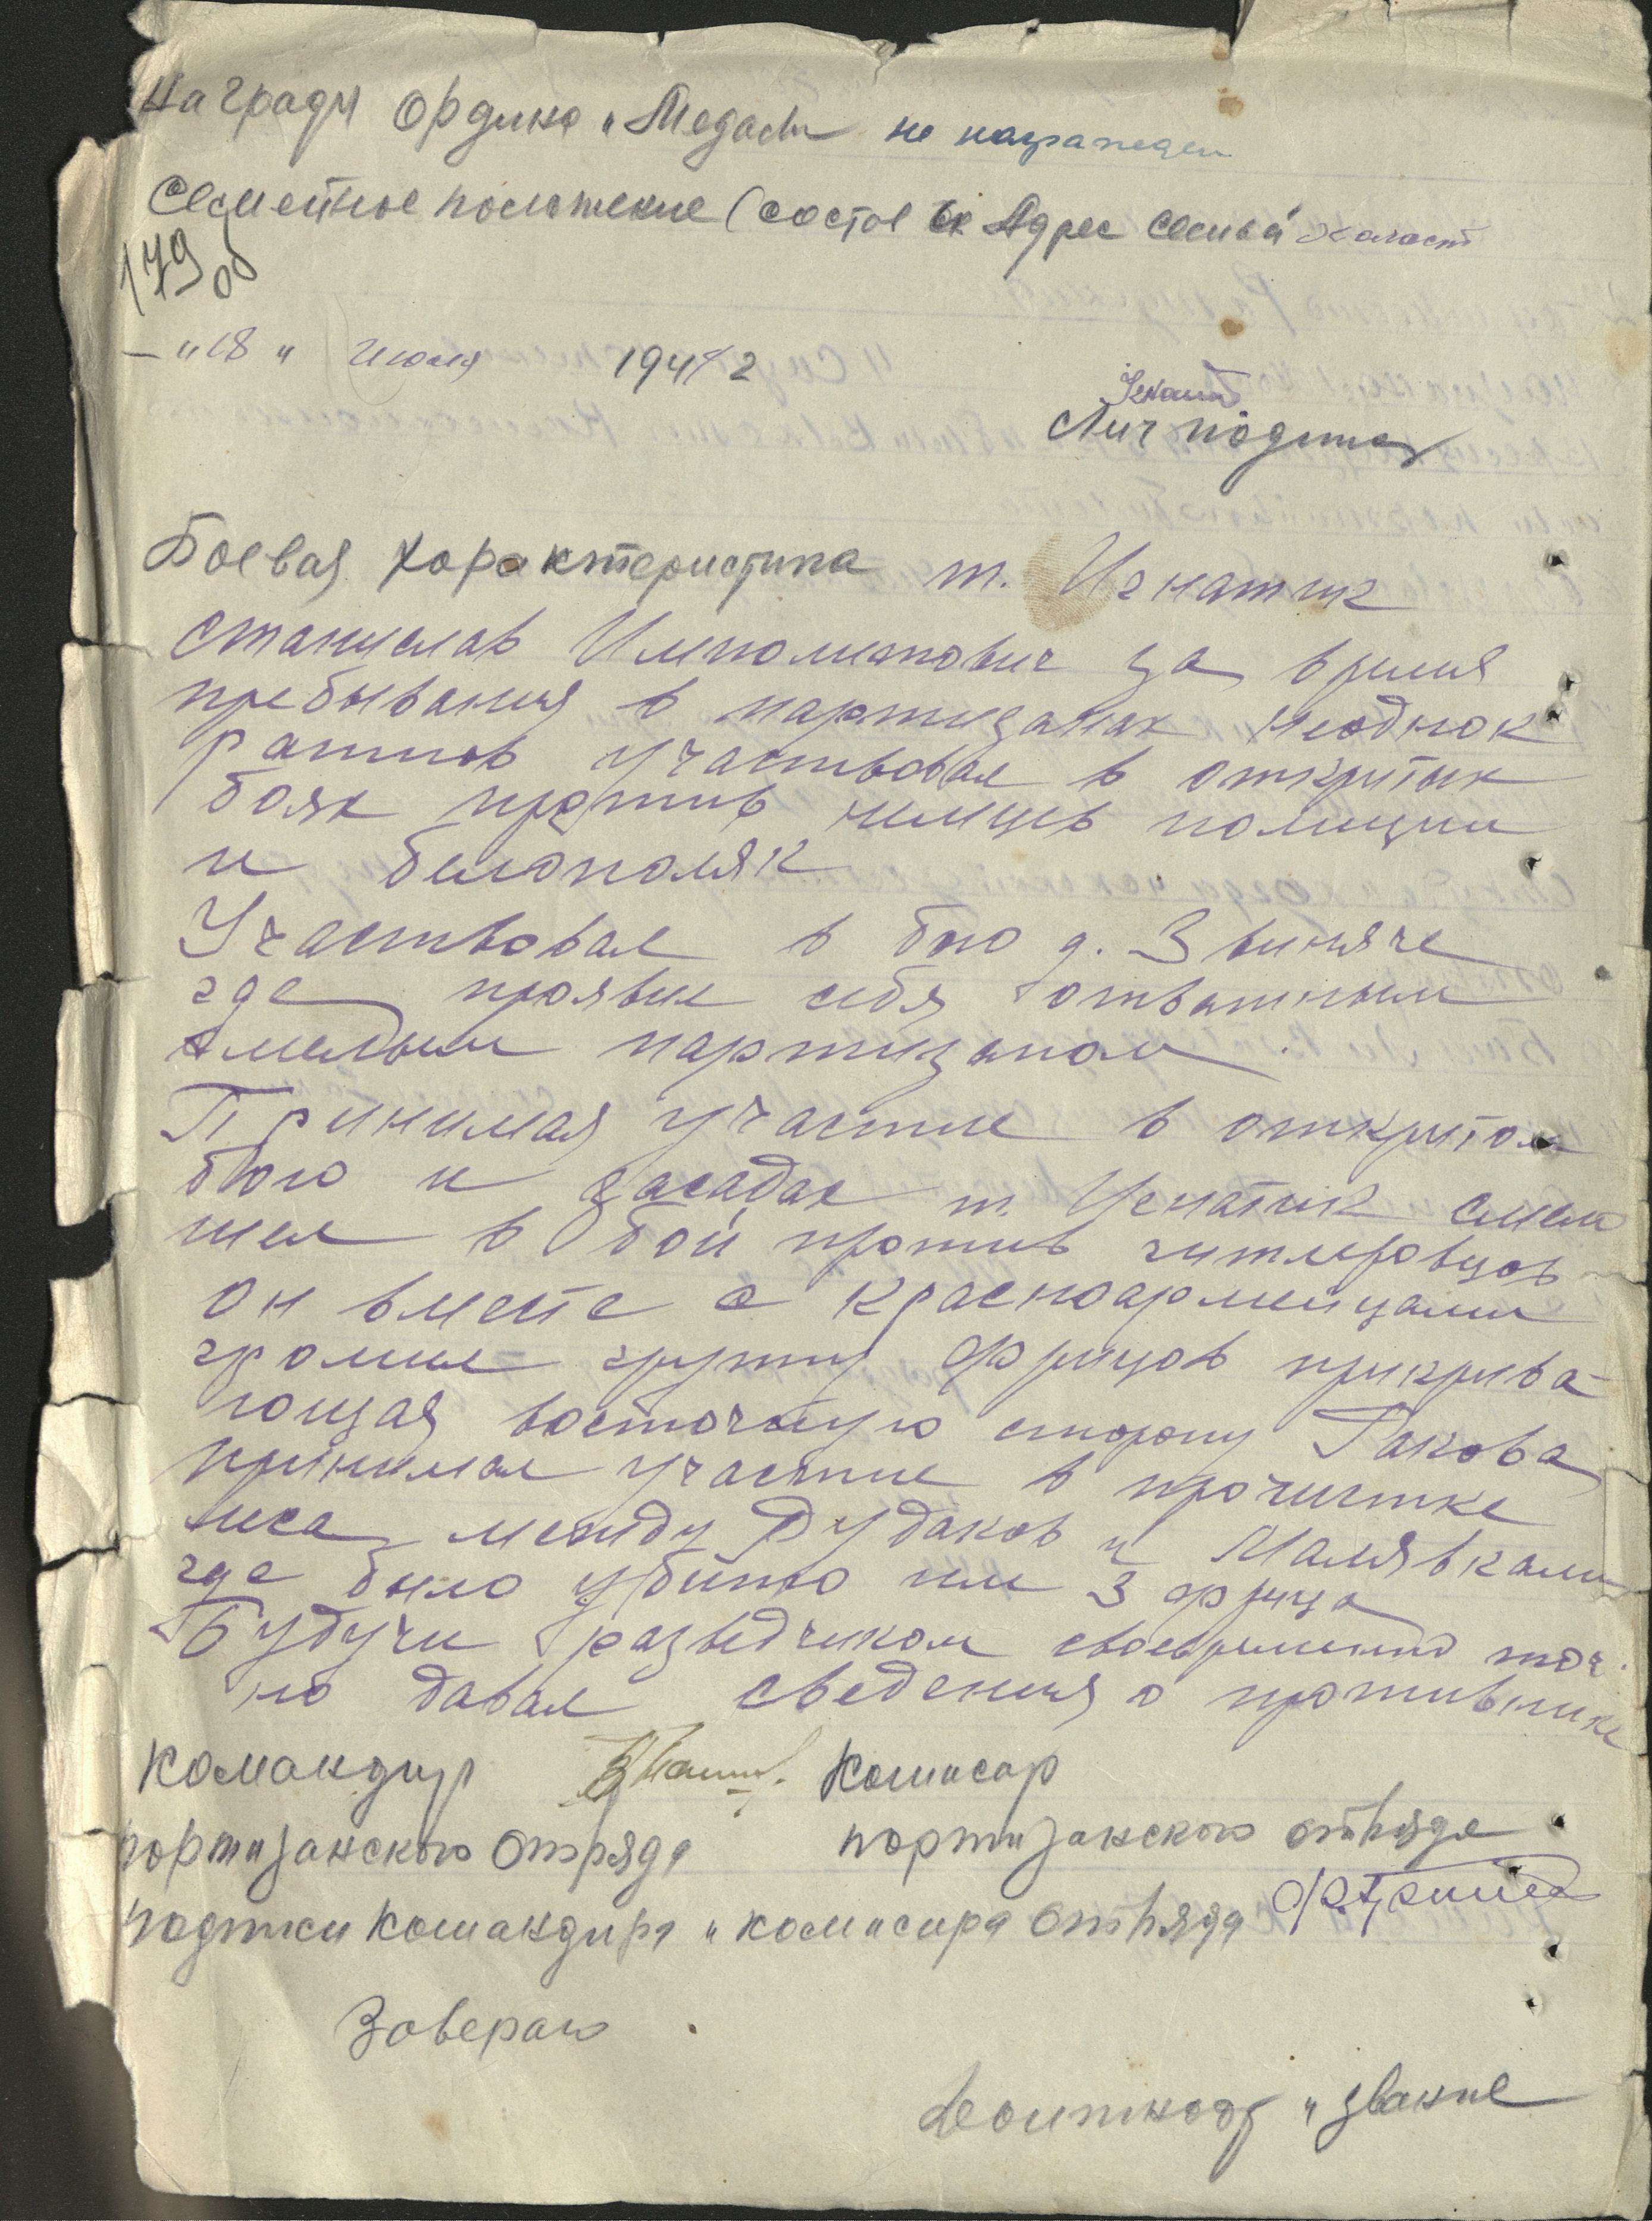 Награды Ордина и Медали не награжден
Семейное положение (состов ея Адрес семьи холост
179 об
— "18" Июля 1942
Лич подпись
Боевая характеристика т. Игнатик
Станислав Ипполитович за время
пребывания в партизанах неоднок
ратнов участвовал в открытых
боях против немцев полиции
и белополяк
Участвовал в бою д. Звиняче
где проявил себя отважным
смелым партизаном.
Принимая участие в открытом
бою и засадах т. Игнатик смело
шел в бой против гитлеровцов
он вместе с красноармейцами
громил групу фрицов прикрыва-
ющая восточную сторону Ракова
принимал участие в прочистке
леса между Дудаков и Малявками
где было убито им 3 фрица
Будучи разведчиком своевременно точ-
но давал сведения о противнике
Командир Комисар
портизанского Отряда портизанского отряда
подписи Командира и комисара Отряда
Зоверяю
Долтность и звание